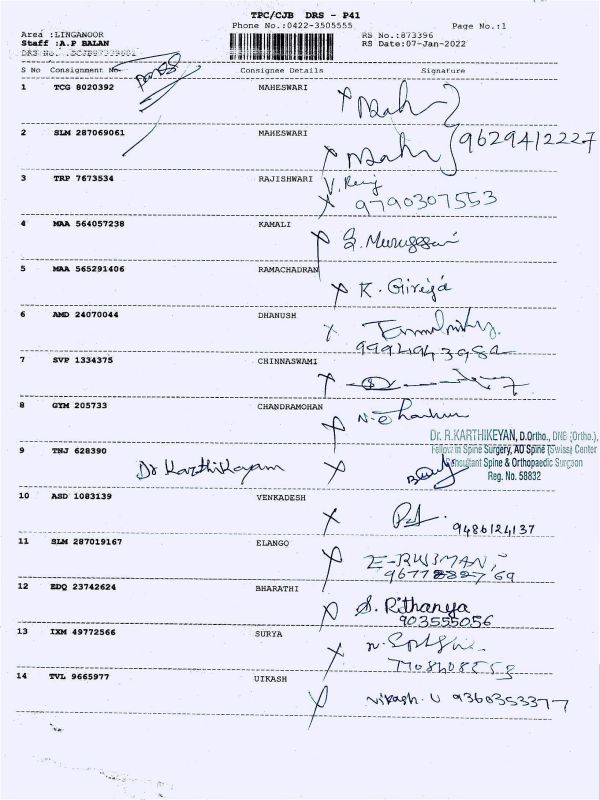 TPC/CJB DRS - P41
Phone No.:0422-3505555 Page No.:1
Area :LINGANOOR RS No.:873396
Staff :A.P BALAN RS Date:07-Jan-2022
S No Consignment No Consignee Details Signature
1 TCG 8020392 MAHESWARI
2 SLM 287069061 MAHESWARI 9629412227
3 TRP 7673534 RAJISHWARI
9790307553
4 MAA 564057238 KAMALI S. Murugesan
5 MAA 565291406 RAMACHADRAN K. Girija
6 AMD 24070044 DHANUSH
7 SVP 1334375 CHINNASWAMI
8 GYM 205733 CHANDRAMOHAN
Dr. R.KARTHIKEYAN, D.Ortho., DNB (Ortho.),
Fellow in Spine Surgery, AO Spine (Swiss) Center
9 TNJ 628390 Dr Karthikeyam Consultant Spine & Orthopaedic Surgeon
Reg. No. 58832
10 ASD 1083139 VENKADESH
9486124137
11 SLM 287019167 ELANGO
12 EDQ 23742624 BHARATHI S. Rithanya
903555056
13 IXM 49772566 SURYA
14 TVL 9665977 UIKASH Vikash. U 9360353377